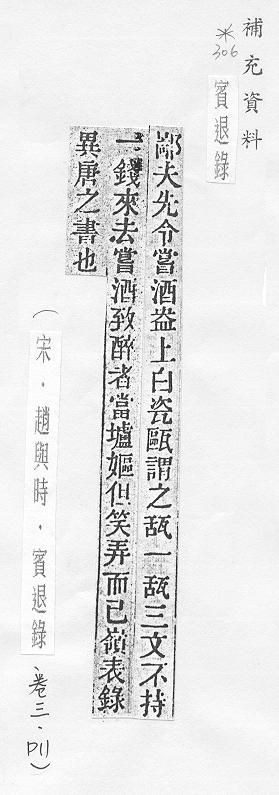 補充資料
*306
賓退錄
鄙夫先令嘗酒盎上白瓷甌謂之㼽一㼽三文不持
一錢來去嘗酒致醉者當壚嫗但笑弄而已嶺表錄
異唐之書也
（宋．趙與時．賓退錄、卷三．P11）